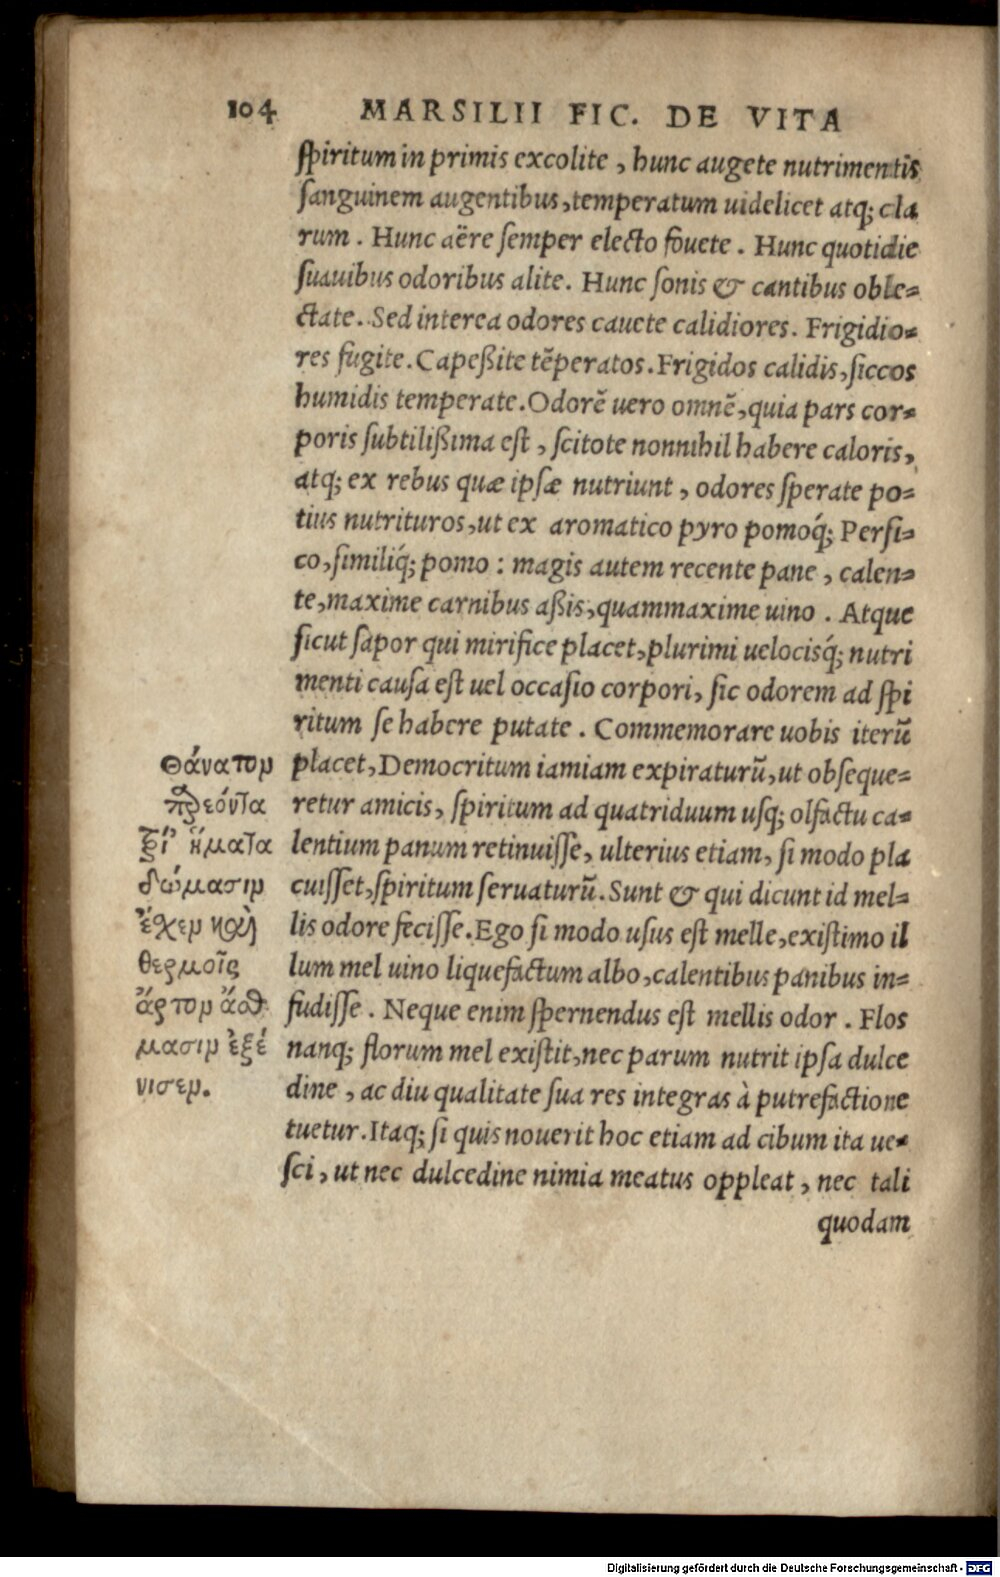 104 MARSILII FIC. DE VITA
ſpiritum in primis excolite, hunc augete nutrimentis
ſanguinem augentibus, temperatum uidelicet atq; cla
rum. Hunc aëre ſemper electo fouete. Hunc quotidie
ſuauibus odoribus alite. Hunc ſonis & cantibus oble=
ctate. Sed interea odores cauete calidiores. Frigidio=
res fugite. Capeßite tẽperatos. Frigidos calidis, ſiccos
humidis temperate. Odorẽ uero omnẽ, quia pars cor=
poris ſubtilißima eſt, ſcitote nonnihil habere caloris,
atq; ex rebus quæ ipſæ nutriunt, odores ſperate po=
tius nutrituros, ut ex aromatico pyro pomoq́; Perſi=
co, ſimiliq́; pomo: magis autem recente pane, calen=
te, maxime carnibus aßis, quammaxime uino. Atque
ſicut ſapor qui mirifice placet, plurimi uelocisq́; nutri
menti cauſa eſt uel occaſio corpori, ſic odorem ad ſpi
ritum ſe habere putate. Commemorare uobis iterũ
placet, Democritum iamiam expiraturũ, ut obſeque=
retur amicis, ſpiritum ad quatriduum uſq; olfactu ca=
lentium panum retinuiſſe, ulterius etiam, ſi modo pla
cuiſſet, ſpiritum ſeruaturũ. Sunt & qui dicunt id mel=
lis odore feciſſe. Ego ſi modo uſus eſt melle, exiſtimo il
lum mel uino liquefactum albo, calentibus panibus in=
fudiſſe. Neque enim ſpernendus eſt mellis odor. Flos
nanq; florum mel exiſtit, nec parum nutrit ipſa dulce
dine, ac diu qualitate ſua res integras à putrefactione
tuetur. Itaq; ſi quis nouerit hoc etiam ad cibum ita ue=
ſci, ut nec dulcedine nimia meatus oppleat, nec tali
quodam
Θάνατον
παρεόντα
τρί' ἤματα
δώμασιν
ἔσχεν καὶ
θερμοῖς
ἄρτον ἄσθ
μασιν ἐξέ
νισεν.
Digitalisierung gefördert durch die Deutsche Forschungsgemeinschaft - DFG